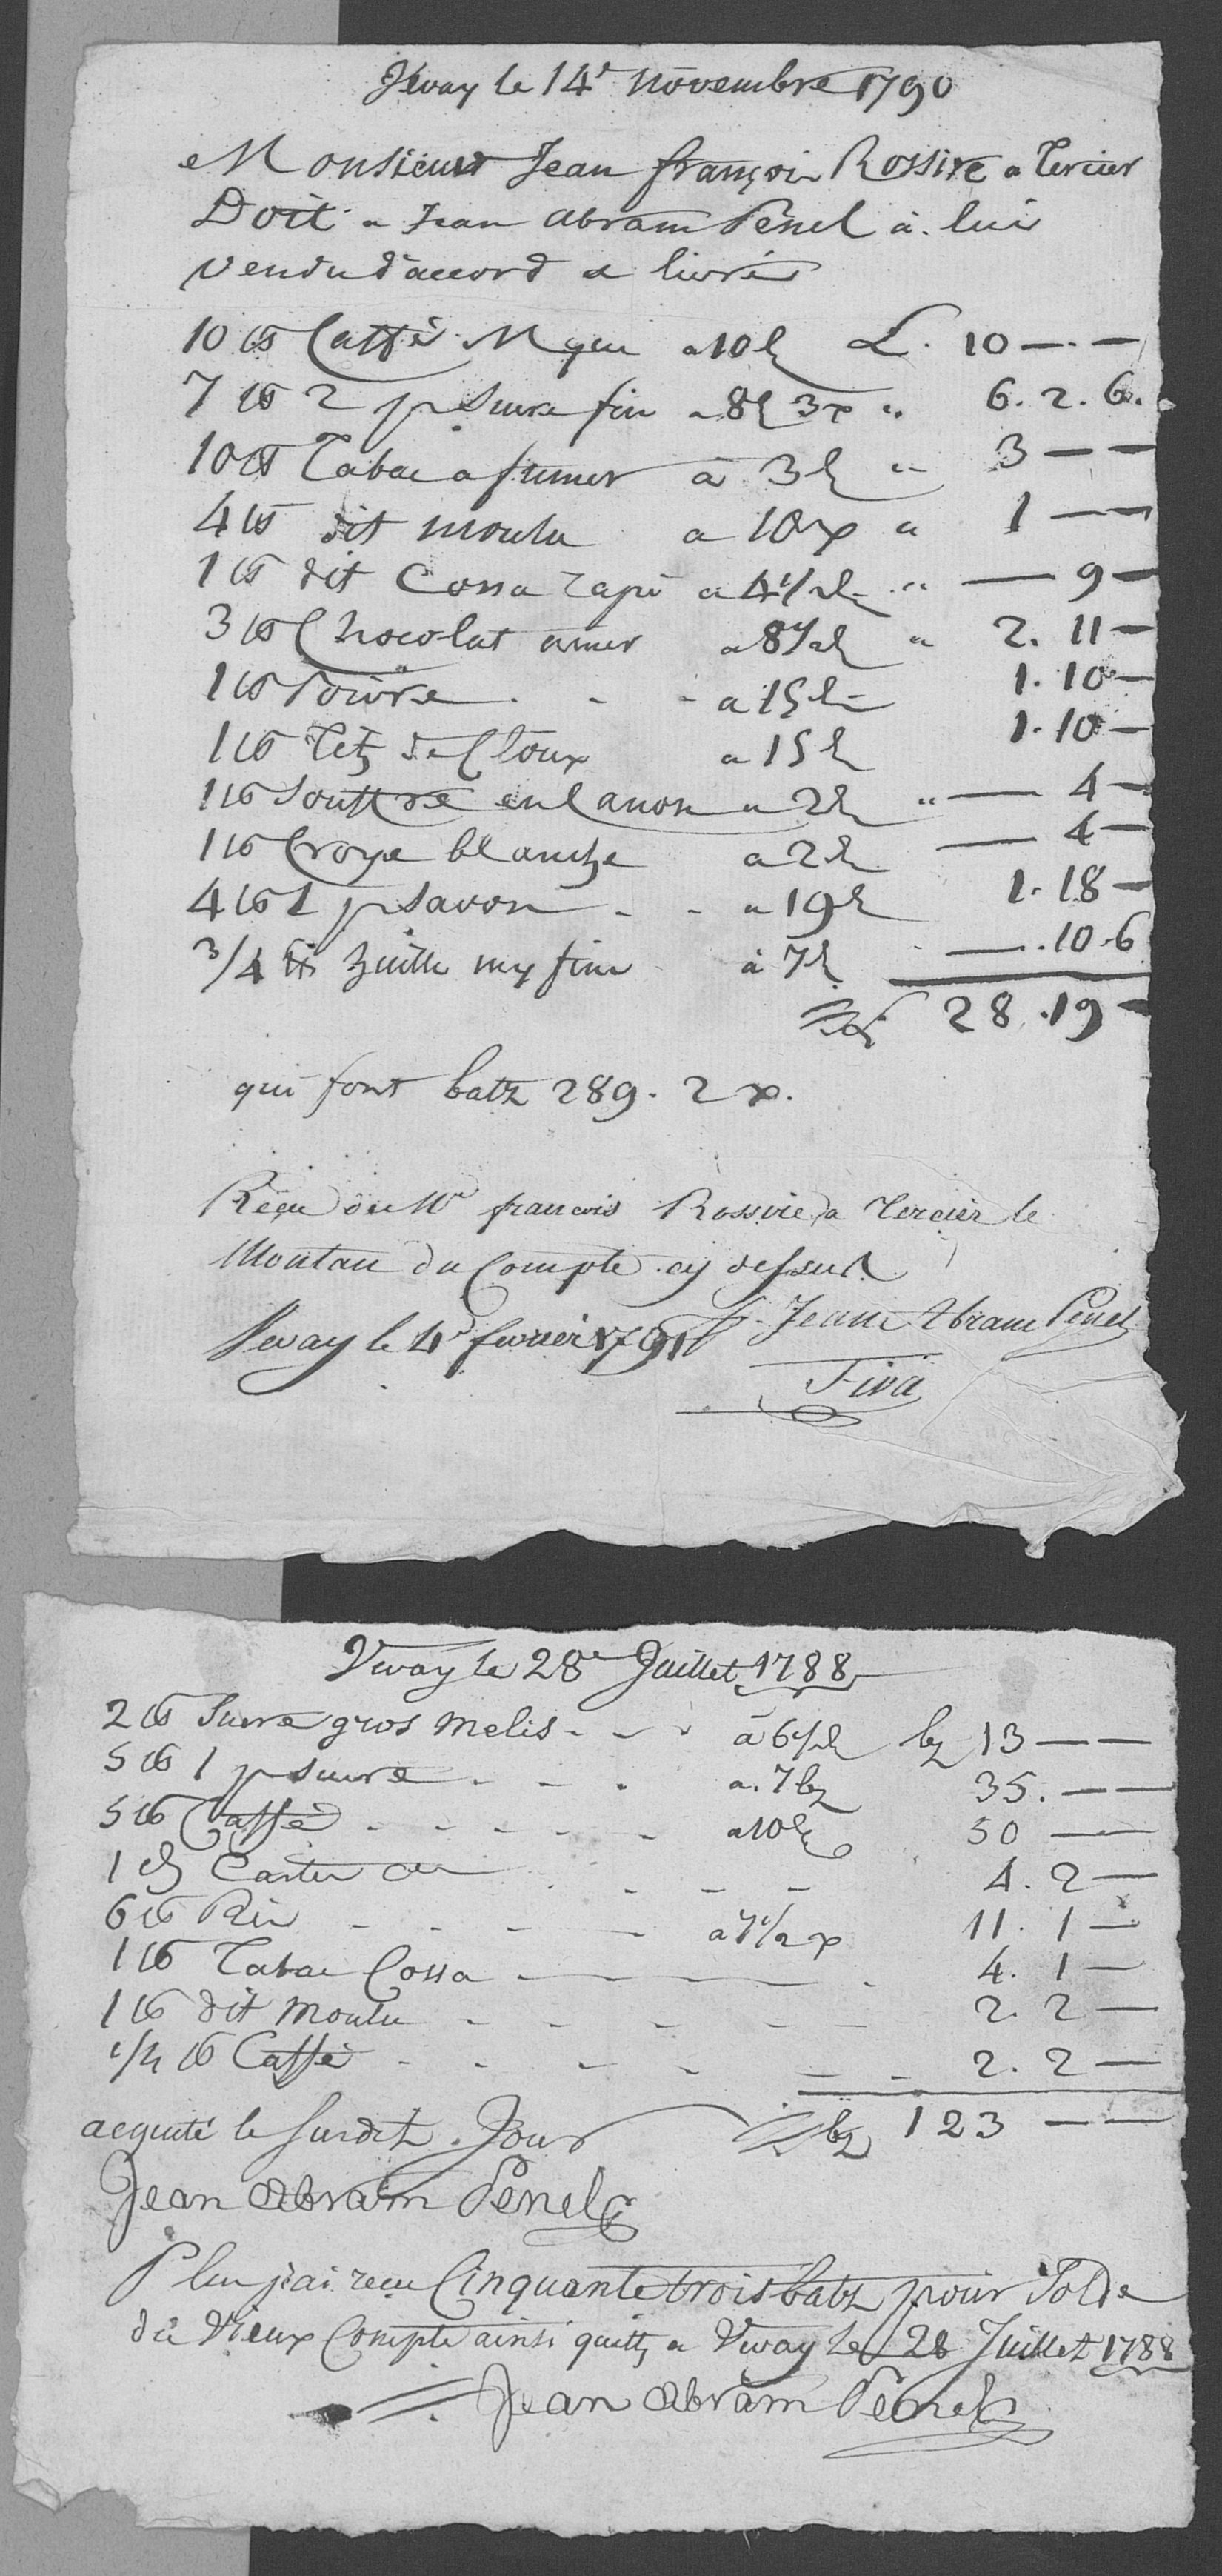 Vevay le 14e Novembre 1790
Monsieur Jean françois Rossire a Tercier
Doit a Jean Abram Penel à lui
Vendu d'accord & livré
10 lb Caffè M que a 10 bz L. 10 — . —
7 lb 2 p Sucre fin a 8 bz 3 x " 6. 2. 6.
10 lb Tabac a fumer à 3 bz " 3 — —
4 lb dit moulu a 10 x " 1 — —
1 lb dit Cossa rapé a 4 1/2 bz " — 9 —
3 lb Chocolat amer a 8 1/2 bz " 2. 11 —
1 lb Poivre . - - a 15 bz 1. 10 —
1 lb Tetz de Cloux a 15 bz 1. 10 —
1 lb Souffre en Canon a 2 bz " — 4 —
1 lb Croye blanche a 2 bz — 4 —
4 lb 1 p Savon - - a 19 bz 1. 18 —
3/4 lb huille my fine à 7 bz — . 10 . 6
L 28 . 19 —
qui font batz 289. 2 x.
Reçu de Mr francois Rossire a Tercier le
Montau du Compte cy dessus
Vevay le 4e fevrier 1791 Jean Abram Penel
Fiva
Vevay le 28e Juillet 1788
2 lb Sucre gros Melis - - - à 6 1/2 bz bz 13 — —
5 lb 1 p sucre . - - . a. 7 bz 35. — —
5 lb Caffè - - - - - - a 10 bz 50 — —
1 Carter . - - - 4. 2 —
6 lb Ris - - - - a 7 1/2 x 11. 1 —
1 lb Tabac Cossa - - - - . 4. 1 —
1 lb dit Moulu - - - - - 2. 2 —
1/4 lb Caffè - - - - - - 2. 2 —
acquité le surdit Jour bz 123 — —
Jean Abram Penel
Plus j'ai reçu Cinquante trois batz pour Solde
du Vieux Compte ainsi quitte a Vevay le 28 Juillet 1788
Jean Abram Penel